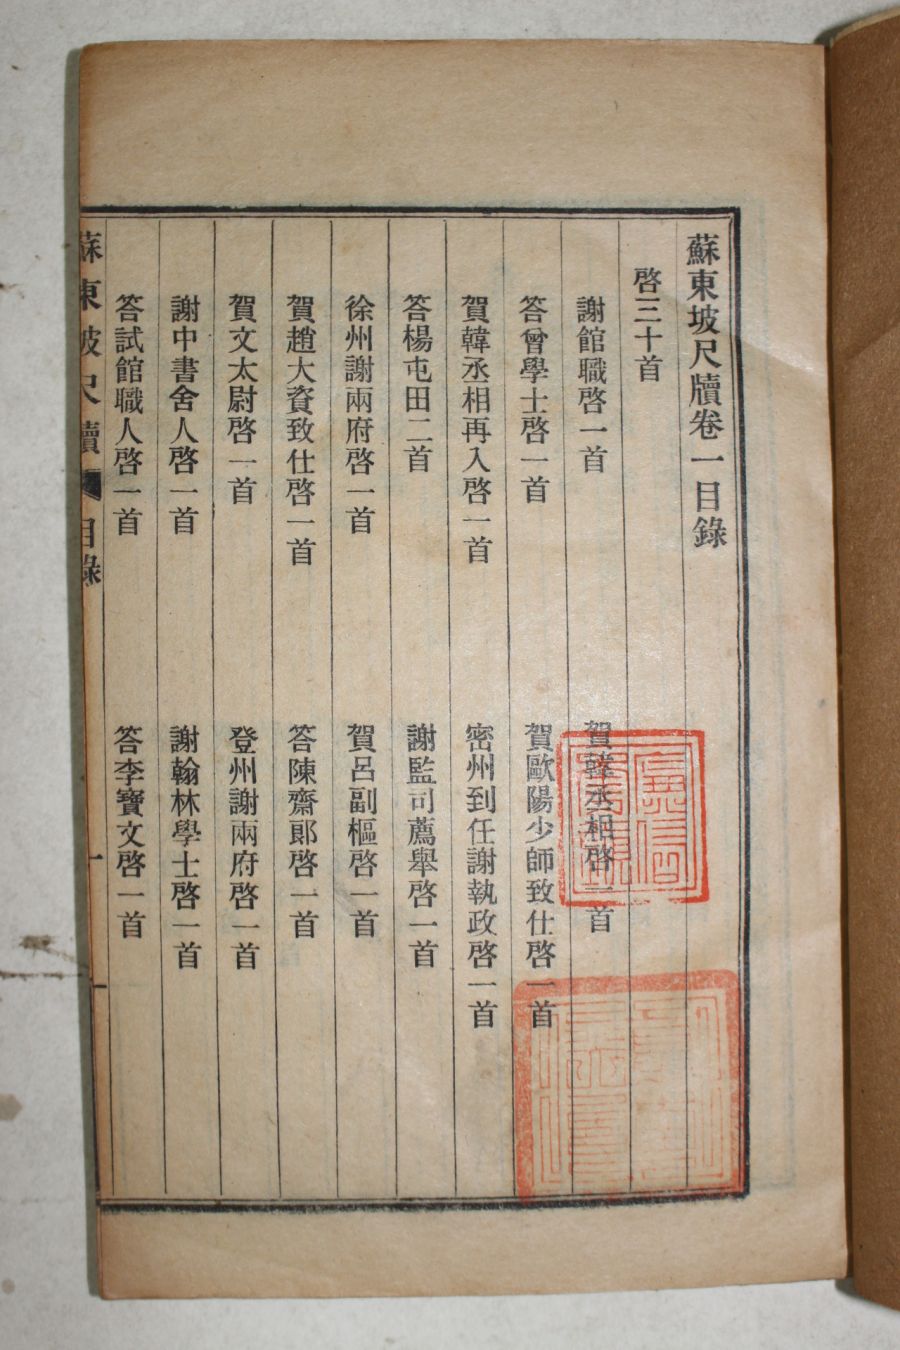 蘇東坡尺牘卷一目錄
啓三十首
謝館職啓一首　賀韓丞相啓一首
答曾學士啓一首　賀歐陽少師致仕啓一首
賀韓丞相再入啓一首　密州到任謝執政啓一首
答楊屯田二首　謝監司薦舉啓一首
徐州謝兩府啓一首　賀呂副樞啓一首
賀趙大資致仕啓一首　答陳齋郎啓一首
賀文太尉啓一首　登州謝兩府啓一首
謝中書舍人啓一首　謝翰林學士啓一首
答試館職人啓一首　答李寶文啓一首
蘇東坡尺牘　目錄　一